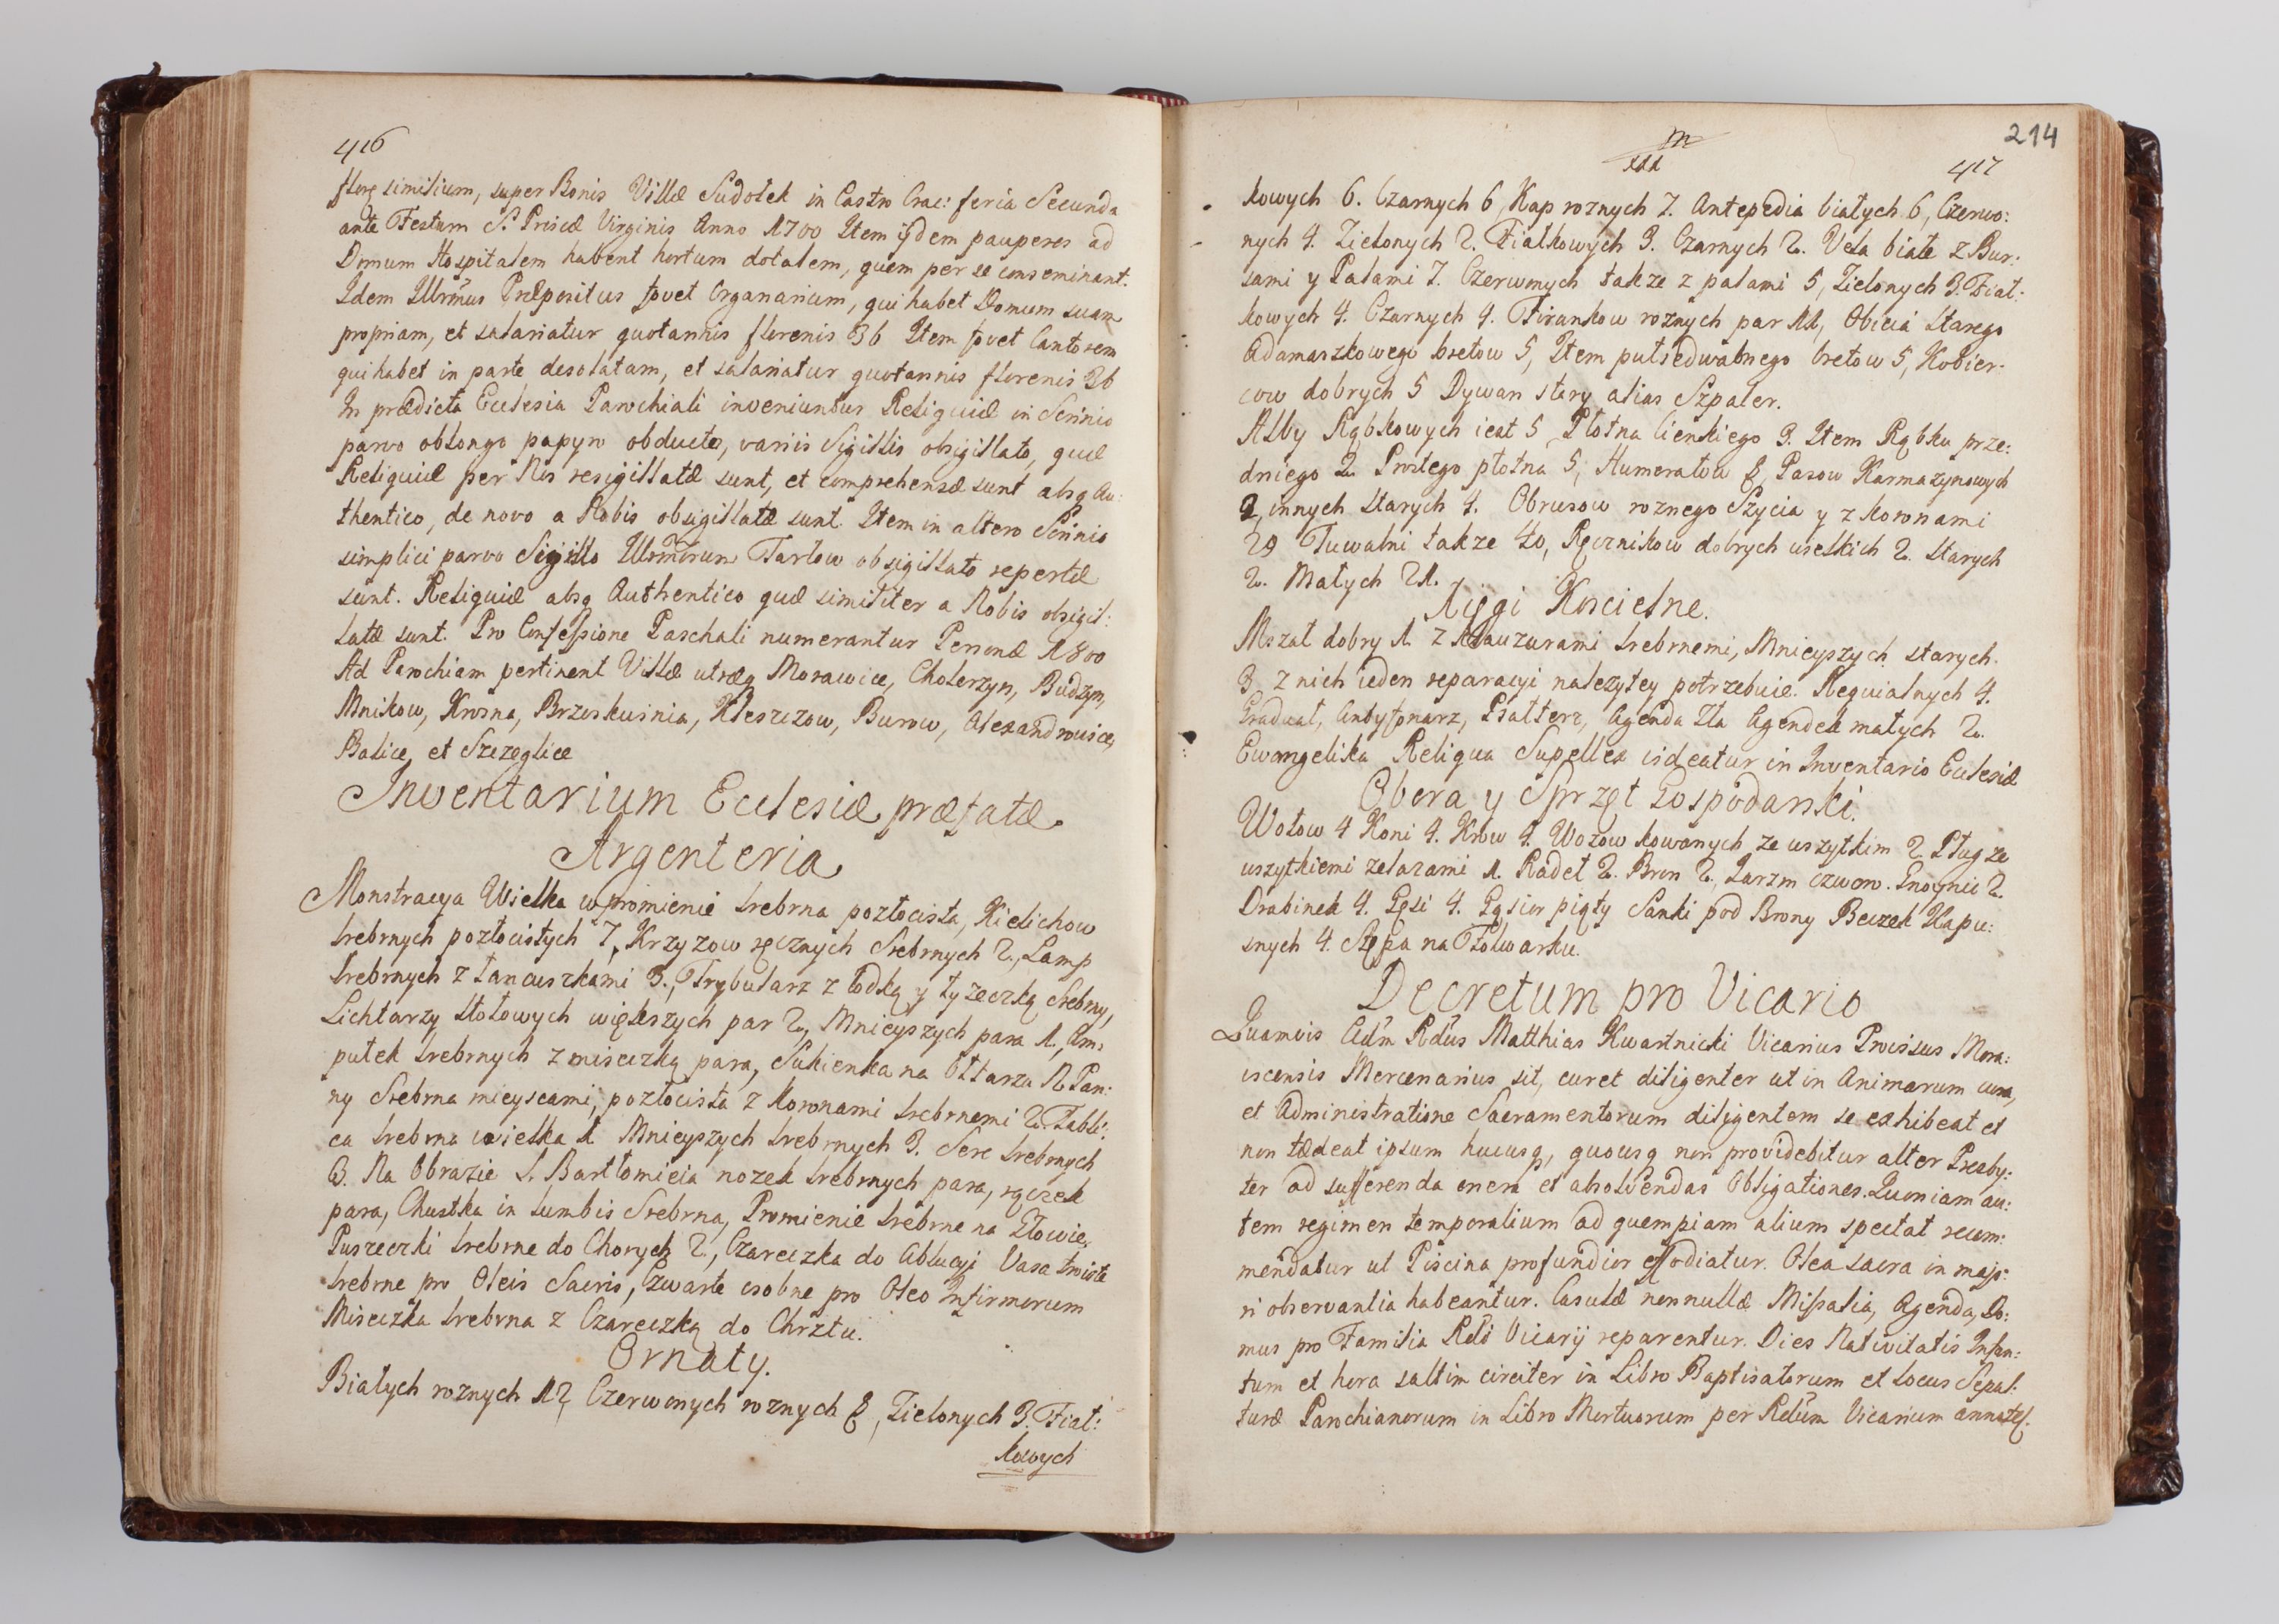 416
flore similium, super Bonis Villæ Sudołek in Castro Crac: feria Secunda
ante Festum S. Priscæ Virginis Anno 1700 Item ijdem pauperes ad
Domum Hospitalem habent hortum dotalem, quem per se conseminant.
Idem Illrmus Præpositus fovet Organarium, qui habet Domum suam
propriam, et salariatur quotannis florenis 36 Item fovet Cantorem
qui habet in parte desolatam, et salariatur quotannis florenis 36
In prædicta Ecclesia Parochiali inveniuntur Reliquiæ in Scrinio
parvo oblongo papyro obducto, variis Sigillis obsigillato, quæ
Reliquiæ per Nos resigillatæ sunt, et comprehensæ sunt absq Au:
thentico, de novo a Nobis obsigillatæ sunt. Item in altero Scrinio
simplici parvo Sigillo Illsmorum Tarłow obsigillato repertæ
sunt. Reliquiæ absq Authentico quæ similiter a Nobis obsigil:
latæ sunt. Pro Confessione Paschali numerantur Personæ 1800
Ad Parochiam pertinent Villæ utraq Morawice, Cholerzyn, Budzyn,
Mnikow, Krosna, Brzoskwinia, Kleszczow, Burow, Alexandrowice,
Balice, et Szczeglice
Inventarium Ecclesiæ præfatæ
Argenteria
Monstracya Wielka w promienie srebrna pozłocista, Kielichow
srebrnych pozłocistych 7, Krzyzow ręcznych Srebrnych 2, Lamp
srebrnych z łancuszkami 3., Trybularz z łodką y łyzeczką Srebrny,
Lichtarzy stołowych większych par 2, Mnieyszych para 1, Am:
pułek srebrnych z miseczką para, Sukienka na Ołtarza N. Pan:
ny Srebrna mieyscami, pozłocista z Koronami srebrnemi 2. Tabli:
ca srebrna wielka 1 Mnieyszych srebrnych 3. Serc srebrnych
3. Na Obrazie S. Bartłomieia nozek srebrnych para, rączek
para, Chustka in lumbis Srebrna, Promienie srebrne na Głowie.
Puszeczki srebrne do Chorych 2, Czareczka do Ablucyi Vasa troiste
srebrne pro Oleis Sacris, Czwarte osobne pro Oleo Infirmorum
Miseczka srebrna z Czareczką do Chrztu.
Ornaty.
Białych roznych 12, Czerwonych roznych 8, Zielonych 3. Fiał:
kowych
214
417
kowych 6. Czarnych 6, Kap roznych 7. Antepedia białych 6, Czerwo:
nych 4. Zielonych 2. Fiałkowych 3. Czarnych 2. Vela białe z Bur:
sami y Palami 7. Czerwonych takze z palami 5, Zielonych 3. Fiał:
kowych 4. Czarnych 4. Firankow roznych par 11, Obicia starego
Adamaszkowego bretow 5, Item pułiedwabnego bretow 5, Kobier-
cow dobrych 5 Dywan stary alias Szpaler.
Alby Rąbkowych iest 5, Płotna cienkiego 3. Item Rąbku prze:
dniego 2. Prostego płotna 5, Humerałow 8, Pasow Karmazynowych
2, innych starych 4. Obrusow roznego Szycia y z koronami
20 Tuwalni takze 40, Ręcznikow dobrych wselkich 2. starych
2. Małych 21.
Xięgi Koscielne.
Mszał dobry 1. z Klauzurami srebrnemi, Mnieyszych starych.
3. z nich ieden reparacyi nalezytey potrzebuie. Requialnych 4.
Graduał, Antyfonarz, Psałterz, Agenda Zła Agendek małych 2.
Ewangelika Reliqua Supellex videatur in Inventario Ecclesiæ
Obora y Sprzęt Gospodarski.
Wołow 4 Koni 4. Krow 4. Wozow kowanych ze wszytkim 2. Pług ze
wszytkiemi zelazami 1. Radeł 2. Bron 2, Jarzm czwor. Gnoynic 2.
Drabinek 4. Gęsi 4. Gąsior piąty Sanki pod Brony Beczek Kapu:
snych 4. Stępa na Folwarku.
Decretum pro Vicario
Quamvis Adm Rdus Matthias Kwartnicki Vicarius Provisus Mora:
viscensis Mercenarius sit, curet diligenter ut in Animarum cura,
et Administratione Sacramentorum diligentem se exhibeat et
non tædeat ipsum hucusq, quousq non providebitur alter Presby:
ter ad sufferenda onera et absolvendas Obligationes. Quoniam au:
tem regimen temporalium ad quempiam alium spectat recom:
mendatur ut Piscina profundior effodiatur. Olea sacra in majo:
ri observantia habeantur. Casulæ nonnullæ Missalia, Agenda, Do:
mus pro Familia Rdi Vicarij reparentur. Dies Nativitatis Infan:
tum et hora saltim circiter in Libro Baptisatorum et locus Sepul:
turæ Parochianorum in Libro Mortuorum per Rdum Vicarium